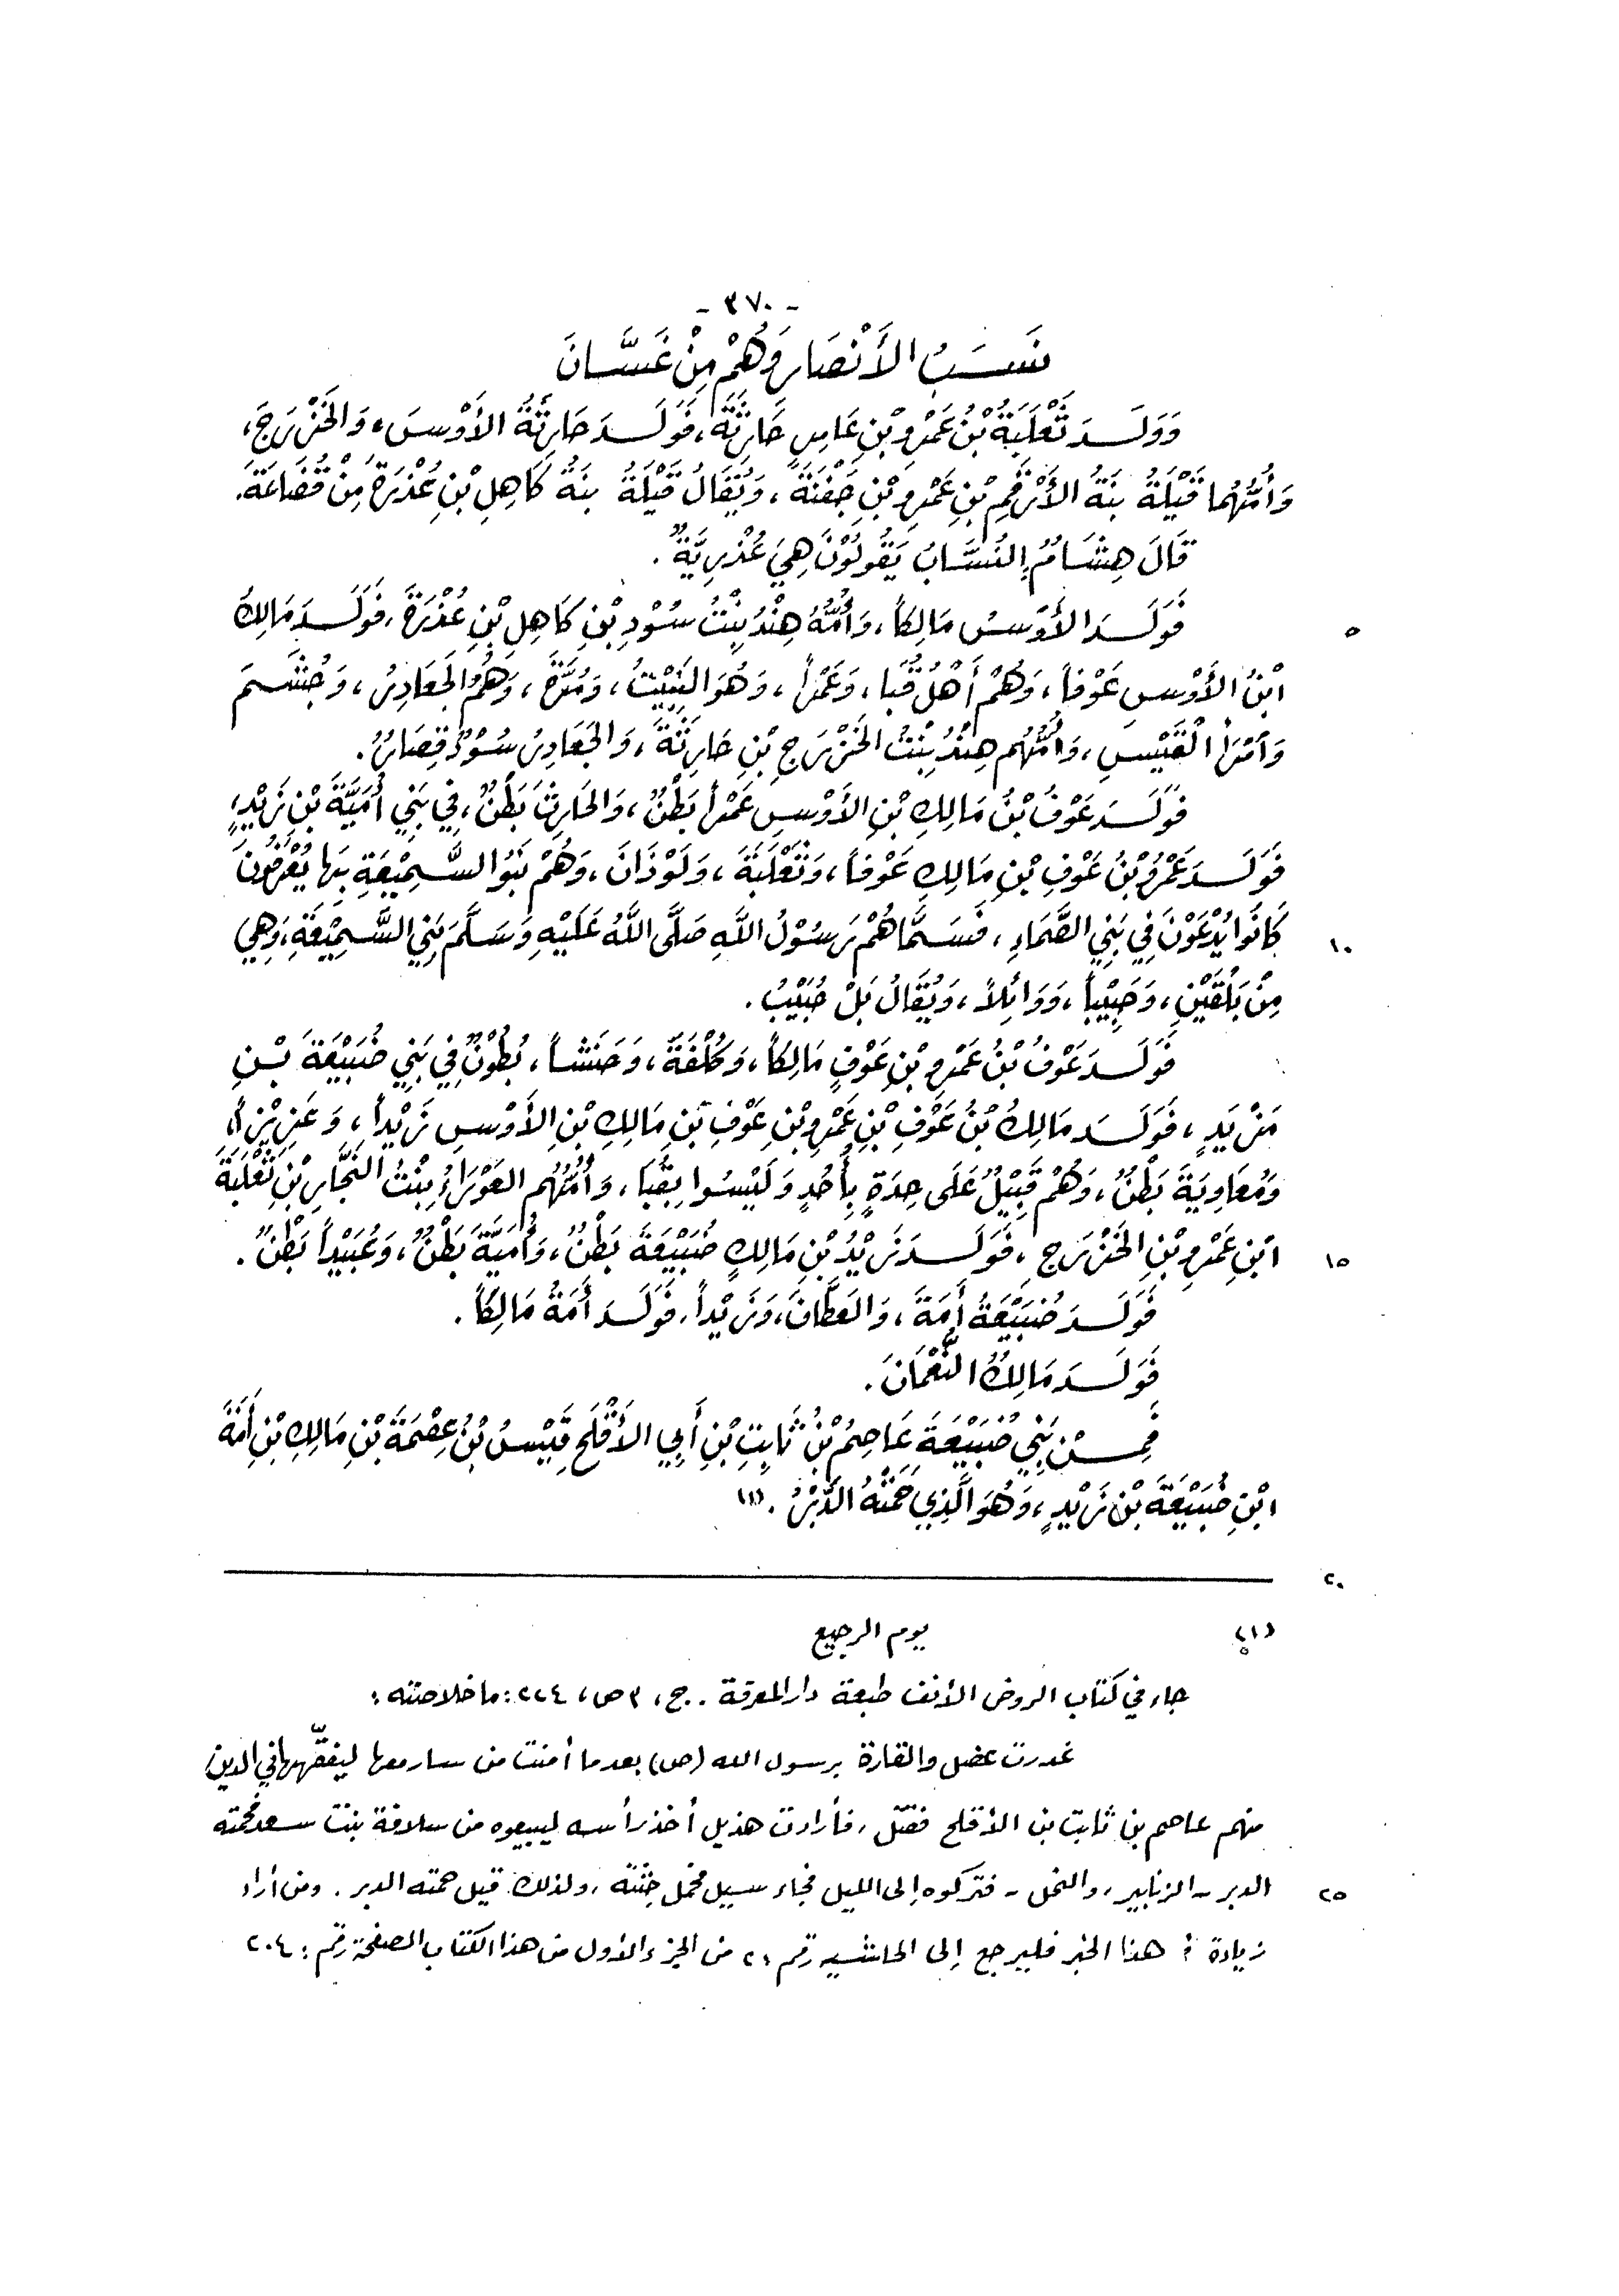 - ٣٧٠ -
نَسَبُ الأَنْصَارِ وَهُمْ مِنْ غَسَّانَ
وَوَلَدَ ثَعْلَبَةُ بْنُ عَمْرِو بْنِ عَامِرٍ حَارِثَةَ، فَوَلَدَ حَارِثَةُ الأَوْسَ، وَالخَزْرَجَ،
وَأُمُّهُما قَيْلَةُ بنَةُ الأَرْقَمِ بْنِ عَمْرِو بْنِ جَفْنَةَ، وَيُقَالُ قَيْلَةُ بنَةُ كَاهِلِ بْنِ عُذْرَةَ مِنْ قُضَاعَةَ.
قَالَ هِشَامٌ النُسَّابُ يَقُولُوْنَ هِيَ عُذْرِيَّةٌ.
٥
فَوَلَدَ الأَوْسُ مَالِكاً، وَأُمُّهُ هِنْدُ بِنْتُ سُوْدِ بْنِ كَاهِلِ بْنِ عُذْرَةَ، فَوَلَدَ مَالِكُ
ابْنُ الأَوْسِ عَوْفاً، وَهُمْ أَهْلُ قُبَا، وَعَمْراً، وَهُوَ النَّبِيْتُ، وَمُرَّةَ، وَهُمُ الجَعَادِرُ، وَجُشَمَ
وَامْرَأَ القَيْسِ، وَأُمُّهُم هِنْدُ بِنْتُ الخَزْرَجِ بْنِ حَارِثَةَ، وَالجَعَادِرُ سُوْدٌ قِصَارٌ.
فَوَلَدَ عَوْفُ بْنُ مَالِكِ بْنِ الأَوْسِ عَمْراً بَطْنٌ، وَالحَارِثَ بَطْنٌ، فِي بَنِي أُمَيَّةَ بْنِ زَيْدٍ،
فَوَلَدَ عَمْرُو بْنُ عَوْفِ بْنِ مَالِكِ عَوْفاً، وَثَعْلَبَةَ، وَلَوْذَانَ، وَهُمْ بَنُو السَّمِيْعَةِ بِهَا يُعْرَفُونَ
١٠
كَانُوا يُدْعَوْنَ فِي بَنِي الصَّمَّاءِ، فَسَمَّاهُمْ رَسُوْلُ اللَّهِ صَلَّى اللَّهُ عَلَيْهِ وَسَلَّمَ بَنِي السَّمِيْعَةِ، وَهِيَ
مِنْ بَلْقَيْنِ، وَحَبِيْباً، وَوَائِلاً، وَيُقَالُ بَلْ حُبَيْبُ.
فَوَلَدَ عَوْفُ بْنُ عَمْرِو بْنِ عَوْفٍ مَالِكاً، وَكُلْفَةَ، وَحَنَشاً، بُطُوْنٌ فِي بَنِي ضُبَيْعَةَ بْنِ
زَيْدٍ، فَوَلَدَ مَالِكُ بْنُ عَوْفِ بْنِ عَمْرِو بْنِ عَوْفِ بْنِ مَالِكِ بْنِ الأَوْسِ زَيْداً، وَعَزِيْزاً،
وَمُعَاوِيَةَ بَطْنٌ، وَهُمْ قَبِيْلٌ عَلَى حِدَةٍ بِأُحُدٍ وَلَيْسُوا بِقُبَا، وَأُمُّهُم العَوْرَاءُ بِنْتُ النَّجَّارِ بْنِ ثَعْلَبَةَ
١٥
ابْنِ عَمْرِو بْنِ الخَزْرَجِ، فَوَلَدَ زَيْدُ بْنِ مَالِكٍ ضُبَيْعَةَ بَطْنٌ، وَأُمَيَّةَ بَطْنٌ، وَعُبَيْداً بَطْنٌ.
فَوَلَدَ ضُبَيْعَةُ أَمَةَ، وَالعَطَّافَ، وَزَيْداً، فَوَلَدَ أَمَةُ مَالِكاً.
فَوَلَدَ مَالِكُ النُّعْمَانَ.
فَمِنْ بَنِي ضُبَيْعَةَ عَاصِمُ بْنُ ثَابِتِ بْنِ أَبِي الأَقْلَحِ قَيْسُ بْنُ عِصْمَةَ بْنِ مَالِكِ بْنِ أَمَةَ
ابْنِ ضُبَيْعَةَ بْنِ زَيْدٍ، وَهُوَ الَّذِي حَمَتْهُ الدَّبْرُ. (١)
٢٠
(١) يوم الرجيع
جاء في كتاب الروض الأنف طبعة دار المعرفة. ج، ٣ ص، ٢٢٤: ما خلاصته:
غدرت عضل والقارة برسول الله (ص) بعدما أمنت من سار معها ليفقّهها في الدين
منهم عاصم بن ثابت بن الأقلح فقتل، فأرادت هذيل أخذ رأسه ليبيعوه من سلافة بنت سعد فحمته
٢٥
الدبر - الزنابير، والنحل - فتركوه إلى الليل فجاء سيل فحمل جثته، ولذلك قيل حمته الدبر. ومن أراد
زيادة في هذا الخبر فليرجع إلى الحاشية رقم: ٢ من الجزء الأول من هذا الكتاب الصفحة رقم: ٢٠٤